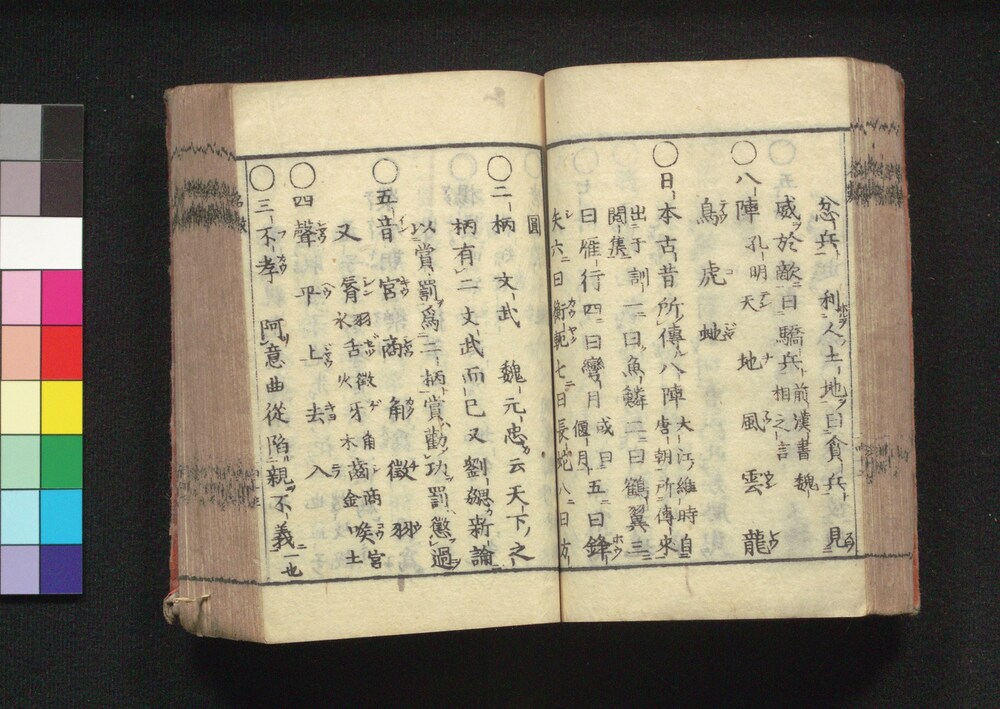 忿兵 利人土地曰貪兵 見
威於敵曰驕兵 前漢書魏相之言
〇八陣 孔明 天 地 風 雲 龍
鳥 虎 虵
〇日本古昔所傳八陣 大江維時自唐朝所傳来
出于訓閲集 一曰魚鱗 二曰鶴翼 三
曰雁行 四曰彎月 或曰偃月 五曰鋒
矢 六曰衡軛 七曰長蛇 八曰方
圓
〇二柄 文武 魏元忠云天下之
柄有二文武而已又劉勰新論
以賞罰為二柄賞勸功罰懲過
〇五音 宮 商 角 徵 羽
又 脣 羽水 舌 徵火 牙 角木 齒 商金 喉 宮土
〇四聲 平 上 去 入
〇三不孝 阿意曲從陷親不義一也